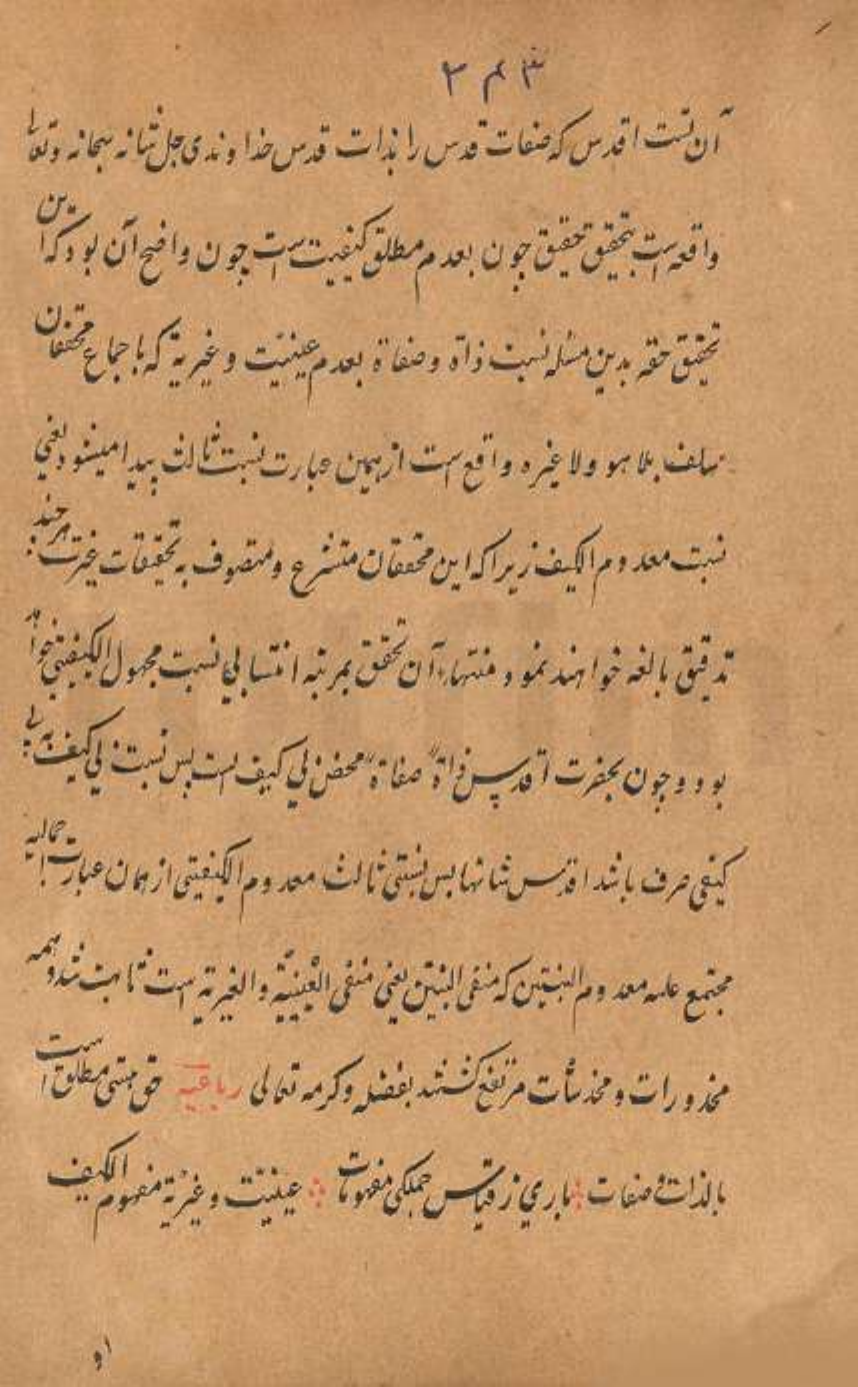 ۳ م ۲
آن نسبت اقدس که صفات قدس را بذات قدس خداوندی جل شانه سبحانه وتعالی
واقعه است بتحقیق تحقیق چون بعدم مطلق کیفیت است چون واضح آن بود که این
تحقیق حقه بدین مسئله نسبت ذاة وصفاة بعدم عینیت وغیریة که باجماع محققان
سلف بلا هو ولا غیره واقع است از همین عبارت نسبت ثالث پیدا میشود یعنی
نسبت معدوم الکیف زیرا که این محققان متشرع ومتصوف به تحقیقات هر چند
تدقیق بالغه خواهند نمود منتهاء آن تحقق بمرتبه انتسابی نسبت مجهول الکیفیتی خواهد
بود وچون بحضرت اقدس ذاة صفاة محض بی کیف است پس نسبت بی کیف به بی
کیفی صرف باشد اقدس شانها پس نسبتی ثالث معدوم الکیفیتی از همان عبارت اجمالیه
مجتمع علیه معدوم النسبتین که منفی النسبتین یعنی منفی العینیّة والغیریة است ثابت شد وهمه
محذورات ومخدشات مرتفع گشتند بفضله وکرمه تعالی رباعیه حق هستی مطلق است
بالذات وصفات باری ز قیاس جملکی مفهومات عینیّت وغیریة مفهوم الکیف
او